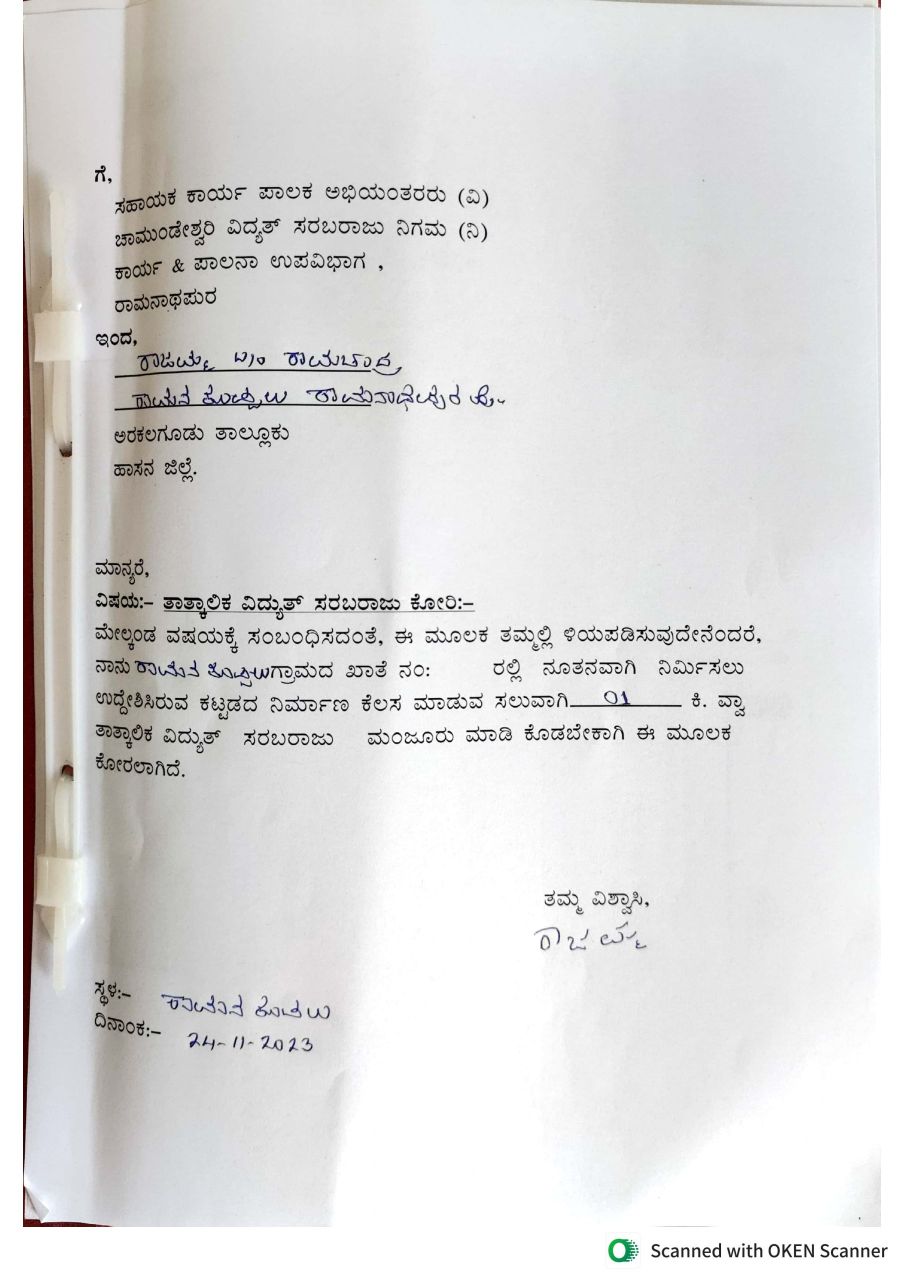 ಗೆ,
ಸಹಾಯಕ ಕಾರ್ಯ ಪಾಲಕ ಅಭಿಯಂತರರು (ವಿ)
ಚಾಮುಂಡೇಶ್ವರಿ ವಿದ್ಯುತ್ ಸರಬರಾಜು ನಿಗಮ (ನಿ)
ಕಾರ್ಯ & ಪಾಲನಾ ಉಪವಿಭಾಗ ,
ರಾಮನಾಥಪುರ
ಇಂದ,
ರಾಜಮ್ಮ
ರಾಮನ ಕೊಪ್ಪಲು
ಅರಕಲಗೂಡು ತಾಲ್ಲೂಕು
ಹಾಸನ ಜಿಲ್ಲೆ.
ಮಾನ್ಯರೆ,
ವಿಷಯ:- ತಾತ್ಕಾಲಿಕ ವಿದ್ಯುತ್ ಸರಬರಾಜು ಕೋರಿ:-
ಮೇಲ್ಕಂಡ ವಷಯಕ್ಕೆ ಸಂಬಂಧಿಸದಂತೆ, ಈ ಮೂಲಕ ತಮ್ಮಲ್ಲಿ ಳಿಯಪಡಿಸುವುದೇನೆಂದರೆ,
ನಾನು ರಾಮನ ಕೊಪ್ಪಲು ಗ್ರಾಮದ ಖಾತೆ ನಂ: ರಲ್ಲಿ ನೂತನವಾಗಿ ನಿರ್ಮಿಸಲು
ಉದ್ದೇಶಿಸಿರುವ ಕಟ್ಟಡದ ನಿರ್ಮಾಣ ಕೆಲಸ ಮಾಡುವ ಸಲುವಾಗಿ 01 ಕಿ. ವ್ಯಾ
ತಾತ್ಕಾಲಿಕ ವಿದ್ಯುತ್ ಸರಬರಾಜು ಮಂಜೂರು ಮಾಡಿ ಕೊಡಬೇಕಾಗಿ ಈ ಮೂಲಕ
ಕೋರಲಾಗಿದೆ.
ತಮ್ಮ ವಿಶ್ವಾಸಿ,
ರಾಜಮ್ಮ
ಸ್ಥಳ:- ರಾಮನ ಕೊಪಲು
ದಿನಾಂಕ:- 24-11-2023
Scanned with OKEN Scanner